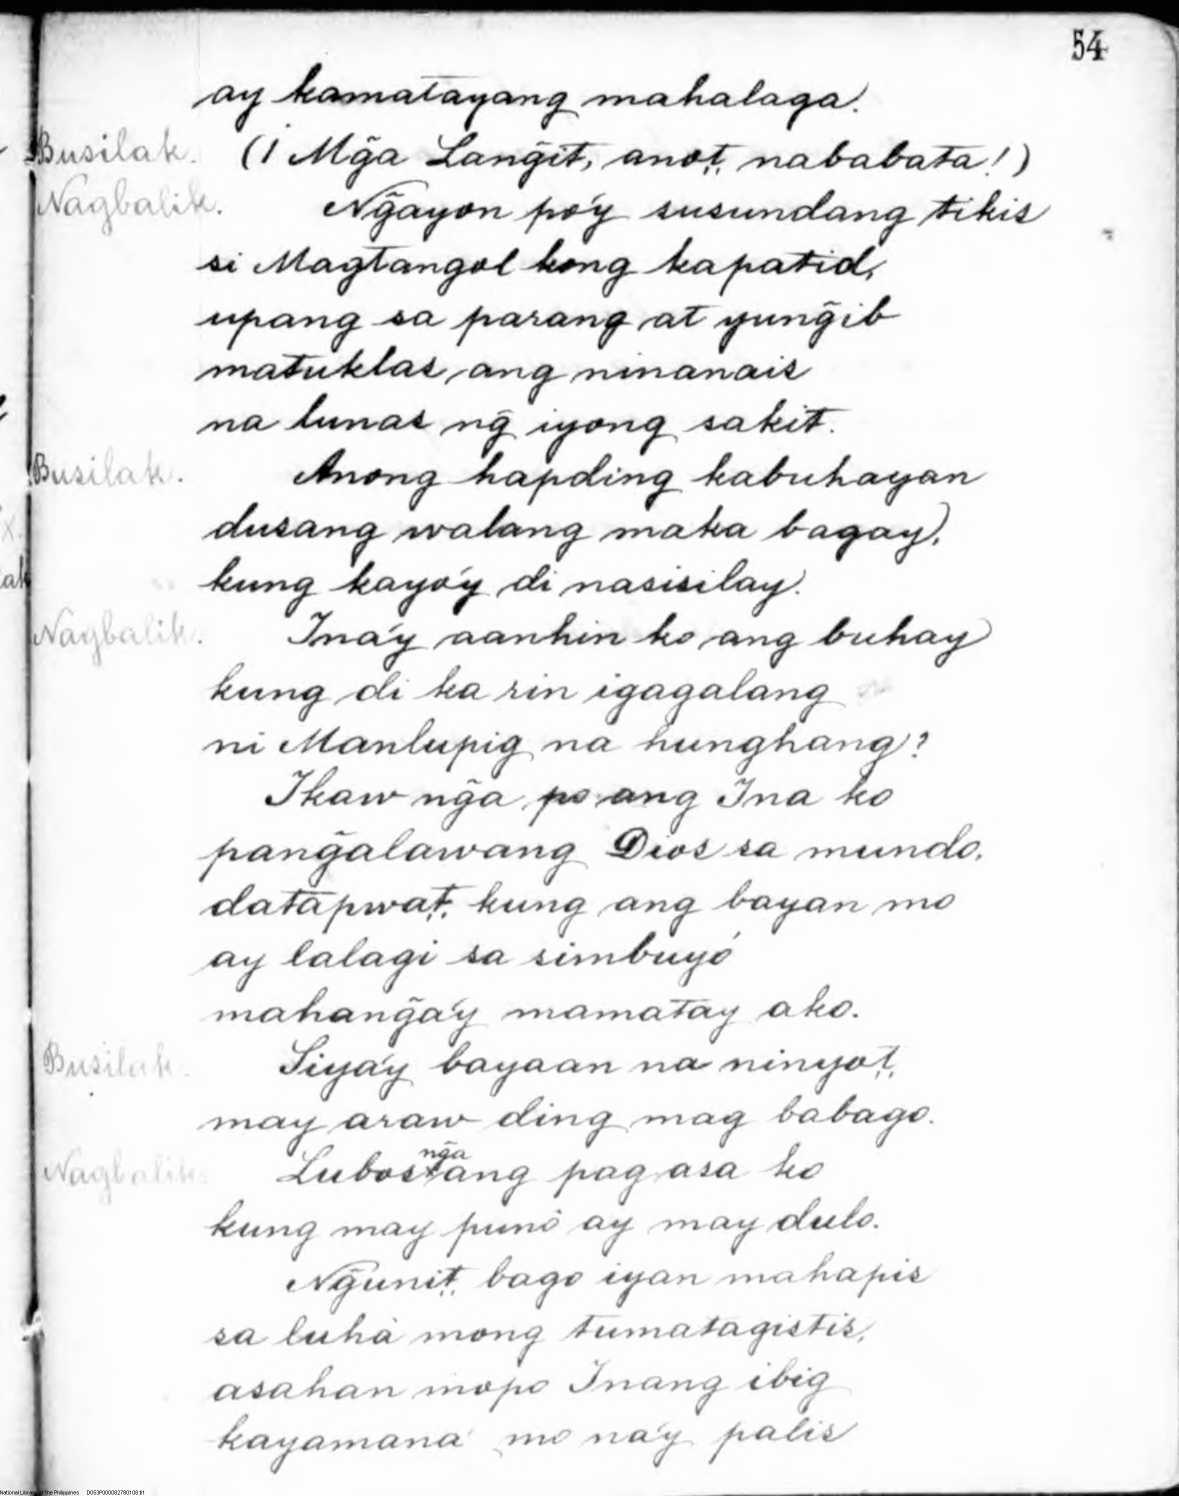 54
ay kamatayang mahalaga.
Busilak. (¡ Mg̃a Lang̃it, anot, nababata!)
Nagbalik. Ng̃ayon po'y susundang tikis
si Magtangol kong kapatid,
upang sa parang at yung̃ib
matuklas ang ninanais
na lunas ng̃ iyong sakit.
Busilak. Anong hapding kabuhayan
dusang walang maka bagay,
kung kayo'y di nasisilay.
Nagbalik. Ina'y aanhin ko ang buhay
kung di ka rin igagalang
ni Manlupig na hunghang?
Ikaw ng̃a po ang Ina ko
pang̃alawang Dios sa mundo,
datapwat, kung ang bayan mo
ay lalagi sa simbuyó
mahang̃a'y mamatay ako.
Busilak. Siya'y bayaan na ninyo't,
may araw ding mag babago.
Nagbalik. Lubos ng̃a ang pag asa ko
kung may punò ay may dulo.
Ng̃unit, bago iyan mahapis
sa luhà mong tumatagistis,
asahan mopo Inang ibig
kayamana mo na'y palis
National Library of the Philippines